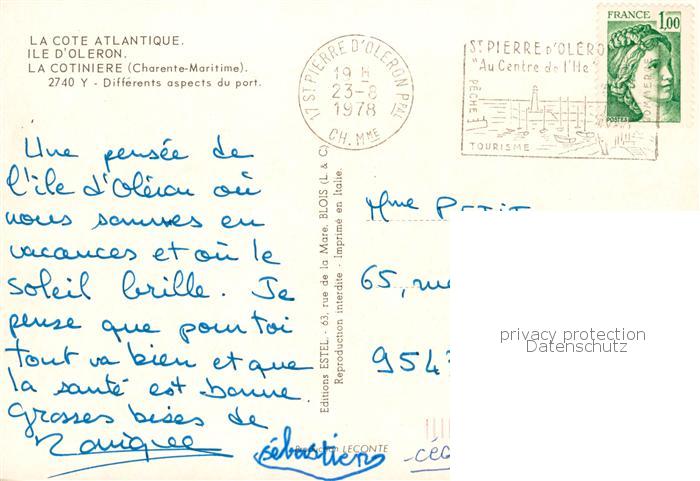 LA COTE ATLANTIQUE.
ILE D'OLERON.
LA COTINIERE (Charente-Maritime).
2740 Y - Différents aspects du port.
17 ST PIERRE D'OLERON PPAL
19 H
23-8
1978
CH. MME
ST PIERRE D'OLÉRO
"Au Centre de l'Ile"
PÊCHE
COMMERCE
TOURISME
FRANCE
1,00
POSTES
Une pensée de
l'île d'Oléron où
nous sommes en
vacances et où le
soleil brille. Je
pense que pour toi
tout va bien et que
la santé est bonne.
Grosses bises de
Monique
Sébastien
CÉC
Editions ESTEL - 63, rue de la Mare, BLOIS (L. & C)
Reproduction interdite - Imprimé en Italie.
LECONTE
Mme PETIT
65, rue
9543
privacy protection
Datenschutz